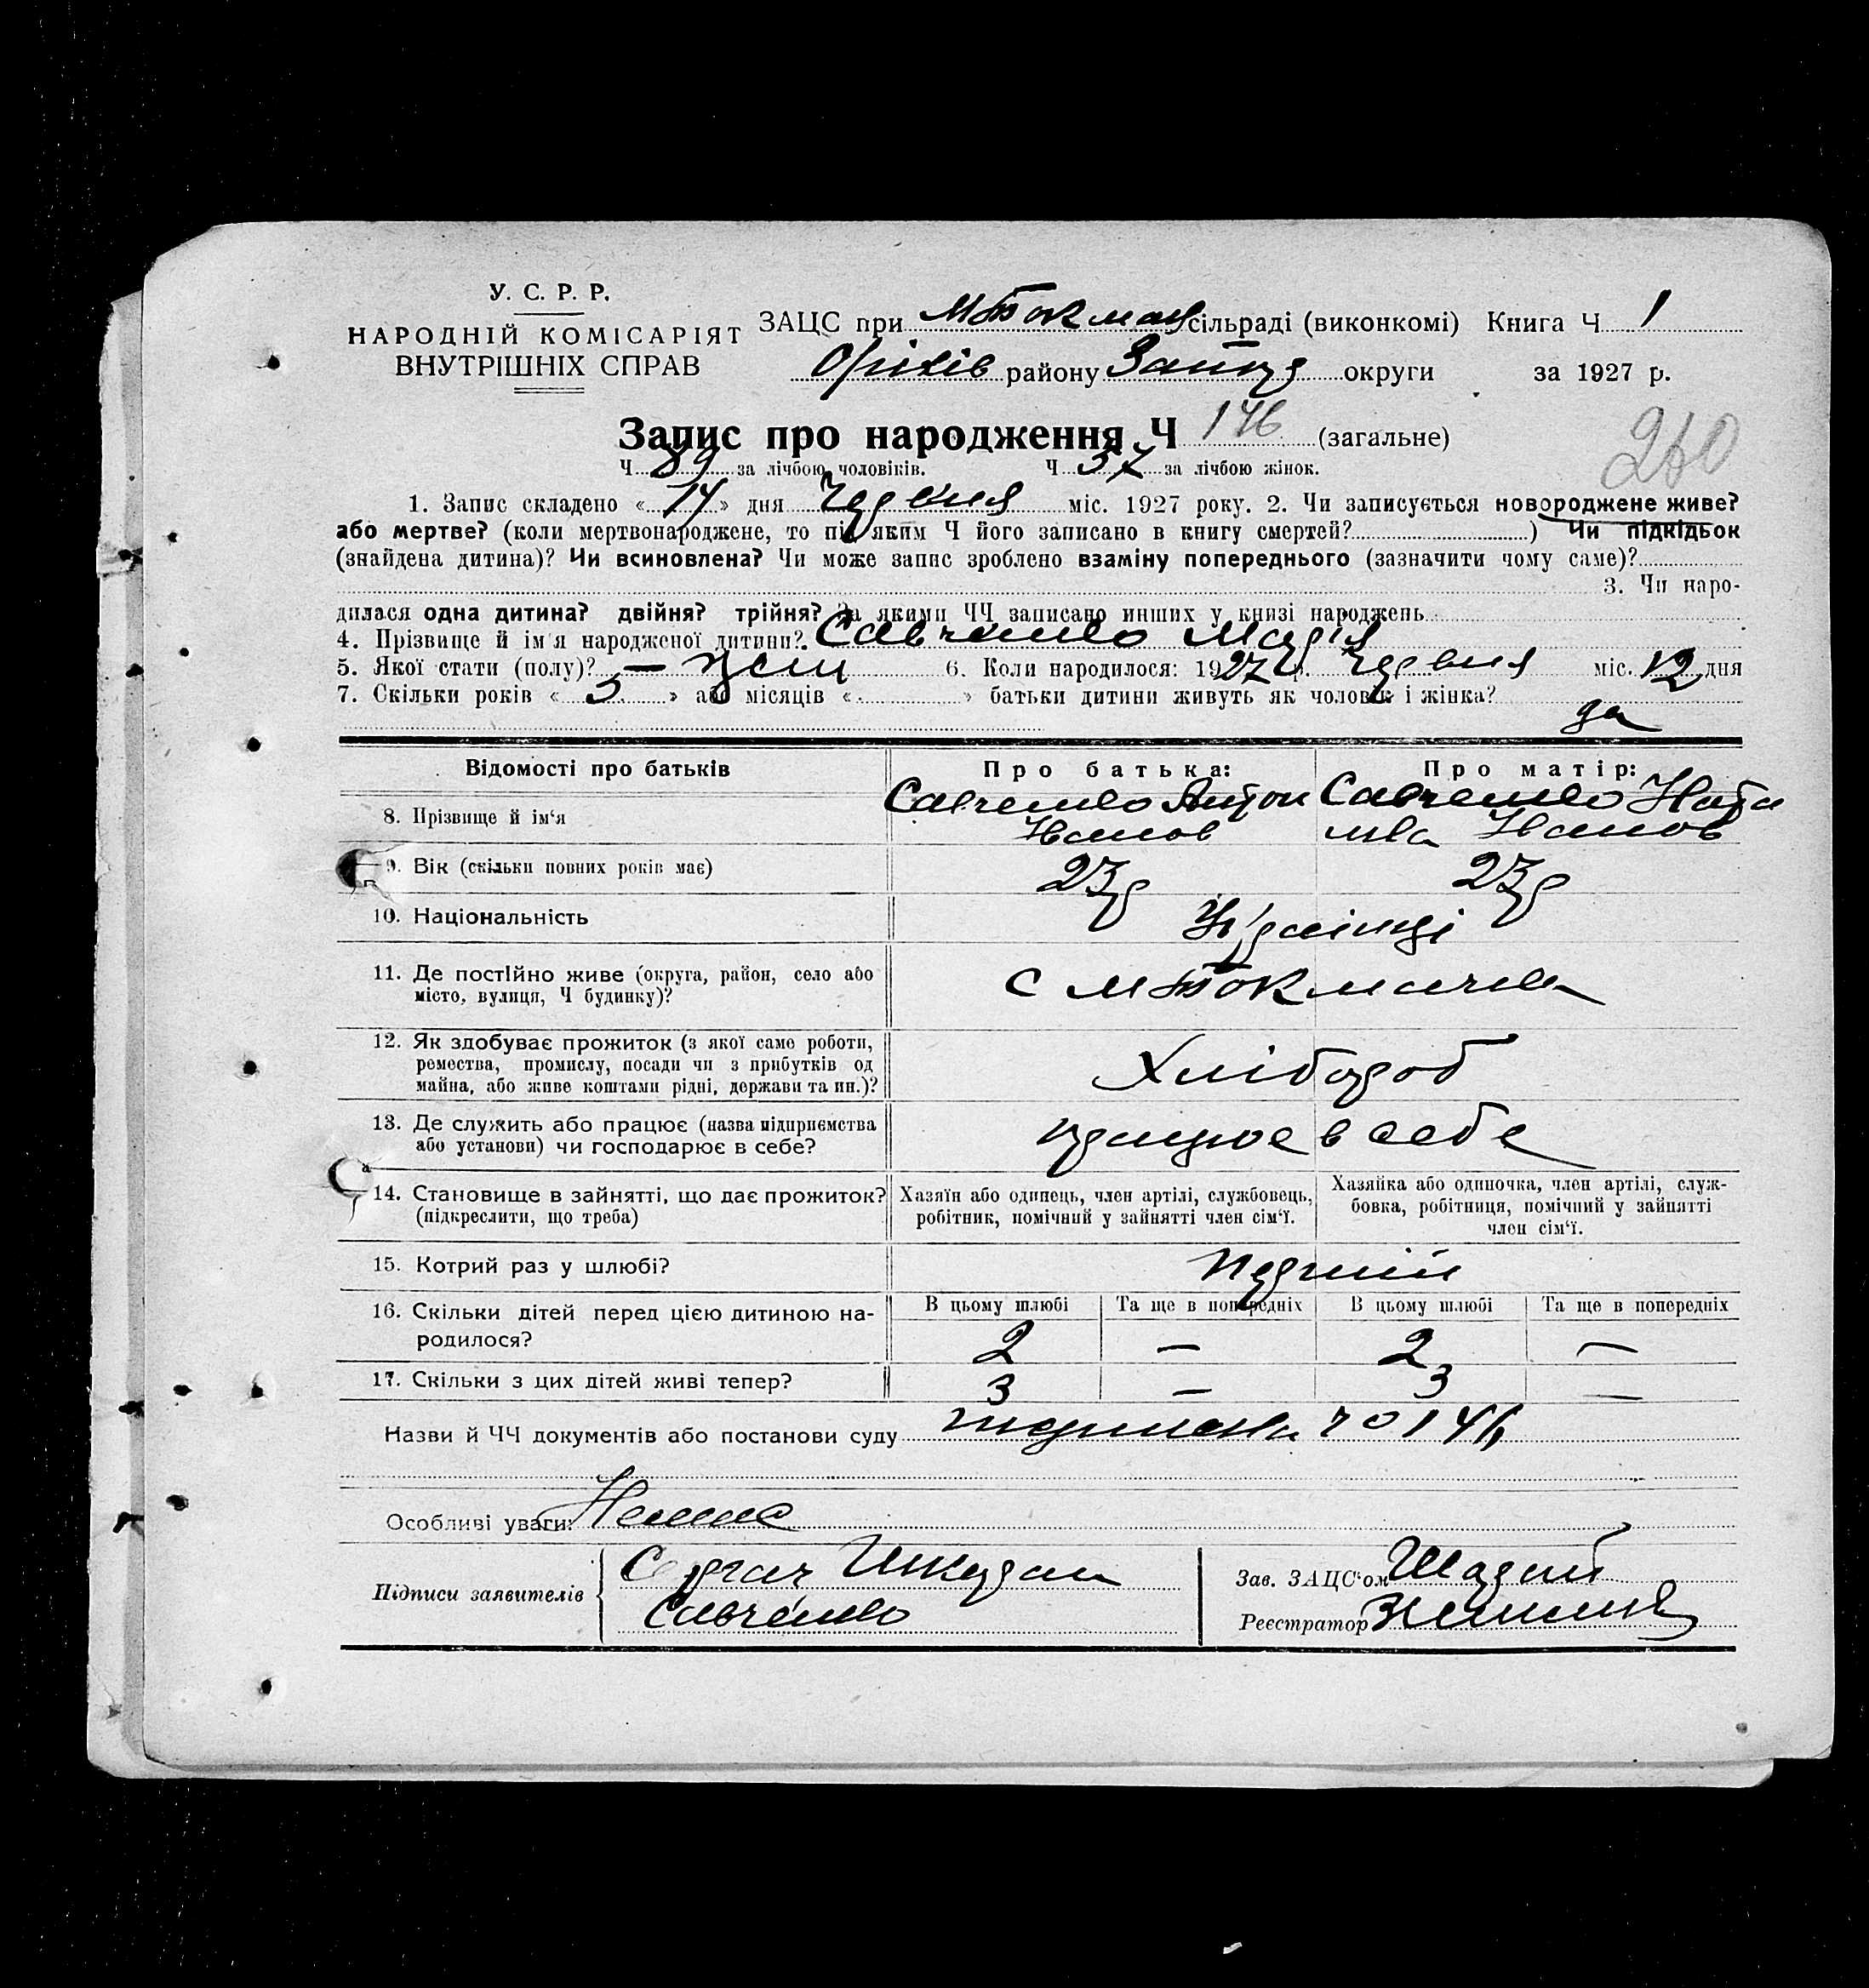 У. С. Р. Р.
НАРОДНІЙ КОМІСАРІЯТ
ВНУТРІШНІХ СПРАВ
ЗАЦС при М Токмац сільраді (виконкомі) Книга Ч 1
Оріхів району Запор округи за 1927 р.
Запис про народження Ч 146 (загальне)
260
Ч 89 за лічбою чоловіків. Ч 57 за лічбою жінок.
1. Запис складено « 14 » дня Червня міс. 1927 року. 2. Чи записується новороджене живе?
або мертве? (коли мертвонароджене, то під яким Ч його записано в книгу смертей? ) Чи підкідьок
(знайдена дитина)? Чи всиновлена? Чи може запис зроблено взаміну попереднього (зазначити чому саме)?
3. Чи наро-
дилася одна дитина? двійня? трійня? За якими ЧЧ записано инших у книзі народжень
4. Прізвище й ім'я народженої дитини? Савченко Марія
5. Якої стати (полу)? — жін 6. Коли народилося: 1927 р. Червня міс. 12 дня
7. Скільки років « 5 » або місяців « » батьки дитини живуть як чоловік і жінка?
да
Відомості про батьків Про батька: Про матір:
8. Прізвище й ім'я Савченко Антон Савченко Ната
Іванов лка Іванов
9. Вік (скільки повних років має) 23р 23р
10. Національність Українці
11. Де постійно живе (округа, район, село або
місто, вулиця, Ч будинку)? с М Токмачка
12. Як здобуває прожиток (з якої саме роботи,
ремества, промислу, посади чи з прибутків од
майна, або живе коштами рідні, держави та ин.)? Хлібороб
13. Де служить або працює (назва підприємства
або установи) чи господарює в себе? працює в себе
14. Становище в зайнятті, що дає прожиток?
(підкреслити, що треба)
Хазяїн або одинець, член артілі, службовець,
робітник, помічний у зайнятті член сім'ї.
Хазяйка або одиночка, член артілі, служ-
бовка, робітниця, помічний у зайнятті
член сім'ї.
15. Котрий раз у шлюбі? Перший
16. Скільки дітей перед цією дитиною на-
родилося?
В цьому шлюбі Та ще в попередніх В цьому шлюбі Та ще в попередніх
2 — 2 —
17. Скільки з цих дітей живі тепер? 3 — 3 —
Назви й ЧЧ документів або постанови суду 146
Особливі уваги: Немає
Підписи заявителів
Савченко
Зав. ЗАЦС'ом
Реєстратор